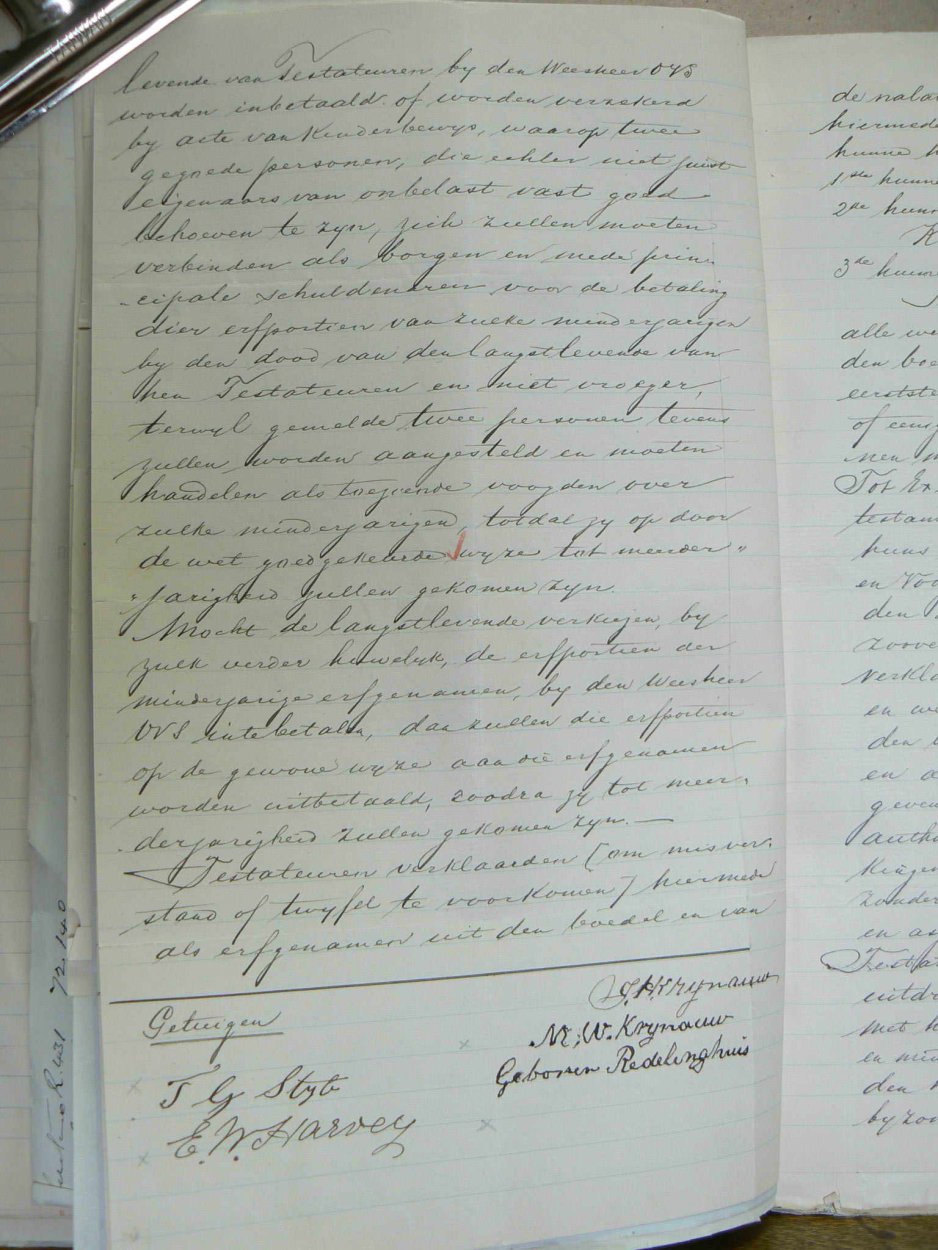 levende van Testateuren by den Weesheer OVS
worden inbetaald of worden verzekerd
by acte van Kinderbewys, waarop twee
gegoede personen, die echter niet juist
eigenaars van onbelast vast goed
behoeven te zyn, zich zullen moeten
verbinden als borgen en mede prin„
„cipale schuldenaren voor de betaling
dier erfportien van zulke minderjarigen
by den dood van den langstlevende van
hen Testateuren en niet vroeger,
terwyl gemelde twee personen tevens
zullen worden aangesteld en moeten
handelen als toeziende voogden over
zulke minderjarigen, totdat zy op door
de wet goedgekeurde wyze tot meerder„
„jarigheid zullen gekomen zyn.
Mocht de langstlevende verkiezen, by
zulk verder huwelyk, de erfportien der
minderjarige erfgenamen, by den Weesheer
OVS intebetalen, dan zullen die erfportien
op de gewone wyze aan die erfgenamen
worden uitbetaald, zoodra zy tot meer„
derjarigheid zullen gekomen zyn.—
Testateuren verklaarden [om misver„
stand of twyfel te voorkomen] hiermede
als erfgenamen uit den boedel en van
Getuigen
J.H. Krynauw
M. W. Krynauw
Geboren Redelinghuis
T G Styb
E.W. Harvey
72.140
de nala
hiermede
hunne
1ste hunne
2de hun
K
3de hunn
alle we
den boe
eerstste
of eenig
nen m
Tot Ex
testam
huns
en Voo
den
zoove
verkla
en we
den
en a
geven
autho
kingen
zonder
en as
Testat
uitdr
met h
en min
den
by zon